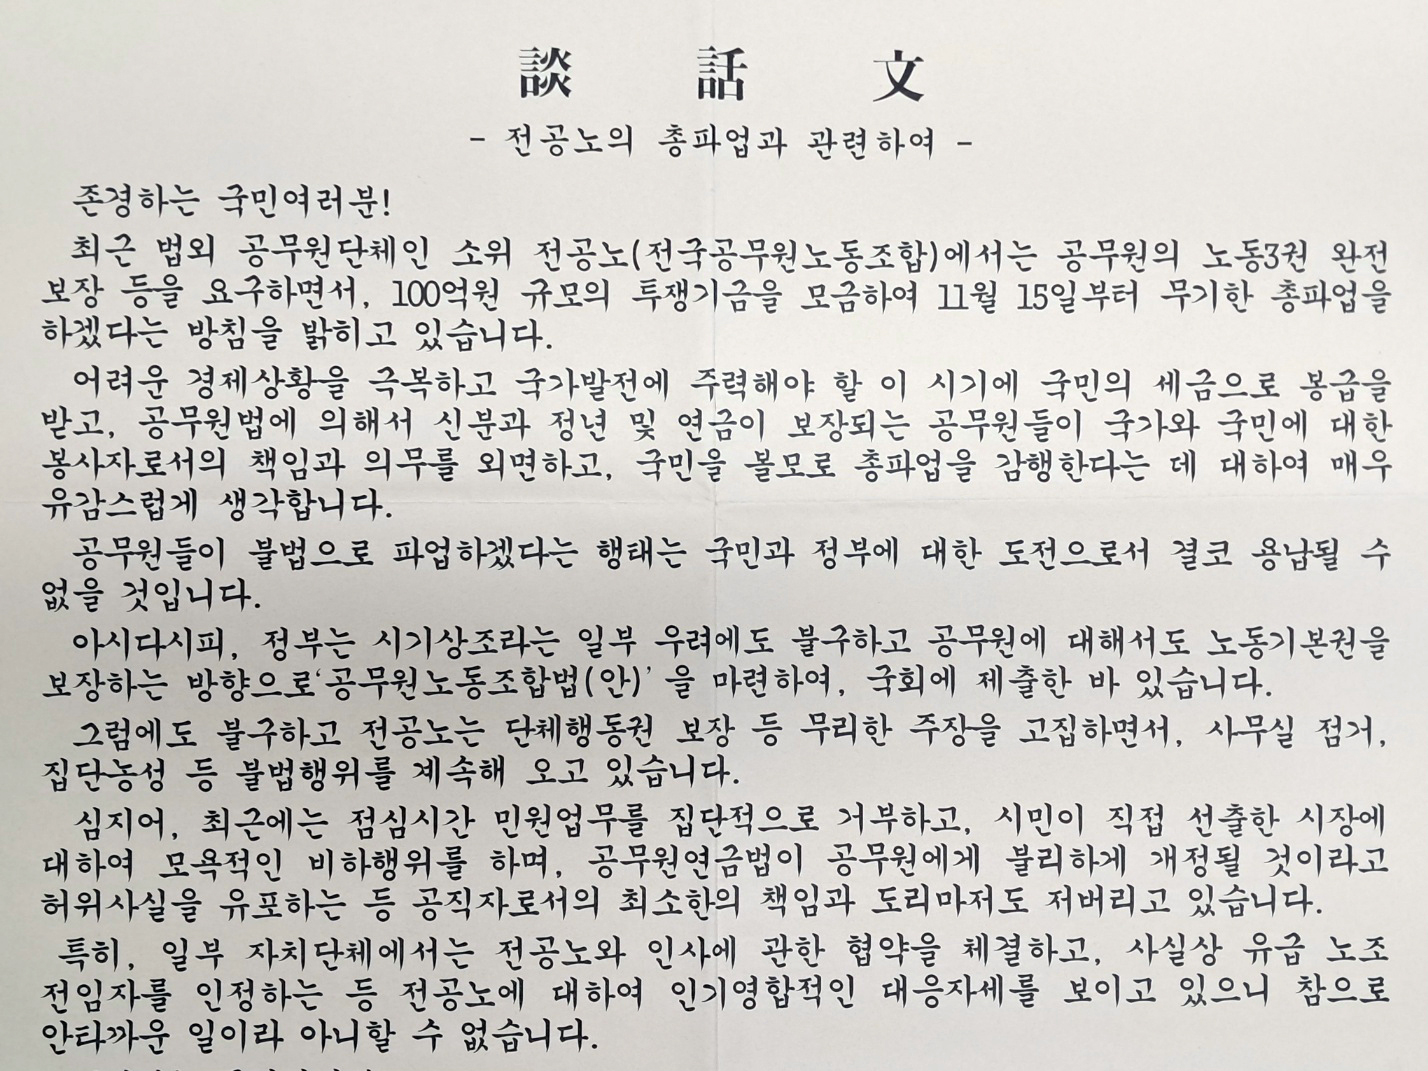 談 話 文
- 전공노의 총파업과 관련하여 -
존경하는 국민여러분!
최근 법외 공무원단체인 소위 전공노(전국공무원노동조합)에서는 공무원의 노동3권 완전
보장 등을 요구하면서, 100억원 규모의 투쟁기금을 모금하여 11월 15일부터 무기한 총파업을
하겠다는 방침을 밝히고 있습니다.
어려운 경제상황을 극복하고 국가발전에 주력해야 할 이 시기에 국민의 세금으로 봉급을
받고, 공무원법에 의해서 신분과 정년 및 연금이 보장되는 공무원들이 국가와 국민에 대한
봉사자로서의 책임과 의무를 외면하고, 국민을 볼모로 총파업을 감행한다는 데 대하여 매우
유감스럽게 생각합니다.
공무원들이 불법으로 파업하겠다는 행태는 국민과 정부에 대한 도전으로서 결코 용납될 수
없을 것입니다.
아시다시피, 정부는 시기상조라는 일부 우려에도 불구하고 공무원에 대해서도 노동기본권을
보장하는 방향으로‘공무원노동조합법(안)’을 마련하여, 국회에 제출한 바 있습니다.
그럼에도 불구하고 전공노는 단체행동권 보장 등 무리한 주장을 고집하면서, 사무실 점거,
집단농성 등 불법행위를 계속해 오고 있습니다.
심지어, 최근에는 점심시간 민원업무를 집단적으로 거부하고, 시민이 직접 선출한 시장에
대하여 모욕적인 비하행위를 하며, 공무원연금법이 공무원에게 불리하게 개정될 것이라고
허위사실을 유포하는 등 공직자로서의 최소한의 책임과 도리마저도 저버리고 있습니다.
특히, 일부 자치단체에서는 전공노와 인사에 관한 협약을 체결하고, 사실상 유급 노조
전임자를 인정하는 등 전공노에 대하여 인기영합적인 대응자세를 보이고 있으니 참으로
안타까운 일이라 아니할 수 없습니다.